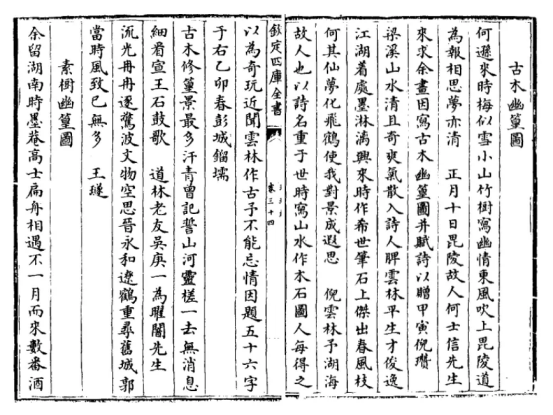 古木幽篁圖
何遜來時梅似雪小山竹樹寫幽情東風吹上毘陵道
為報相思夢亦清　正月十日毘陵故人何士信先生
來求余畫因寫古木幽篁圖并賦詩以贈甲寅倪瓚
梁溪山水清且奇爽氣散入詩人脾雲林平生才俊逸
江湖着處墨淋漓興來時作希世筆石上傑出春風枝
何其仙夢化飛鶴使我對景成遐思　倪雲林予湖海
故人也以詩名重于世時寫山水作木石圖人每得之
欽定四庫全書
卷三十四
以為奇玩近聞雲林作古予不能忘情因題五十六字
于右乙卯春彭城錙壖
古木修篁景最多汗青曽記誓山河靈槎一去無消息
細看宣王石鼓歌　道林老友吳庚一為躍闇先生
流光冉冉逐驚波文物空思晉永和遼鶴重尋舊城郭
當時風致已無多　王璲
素樹幽篁圖
余留湖南時墨菴高士扁舟相遇不一月而來數番酒